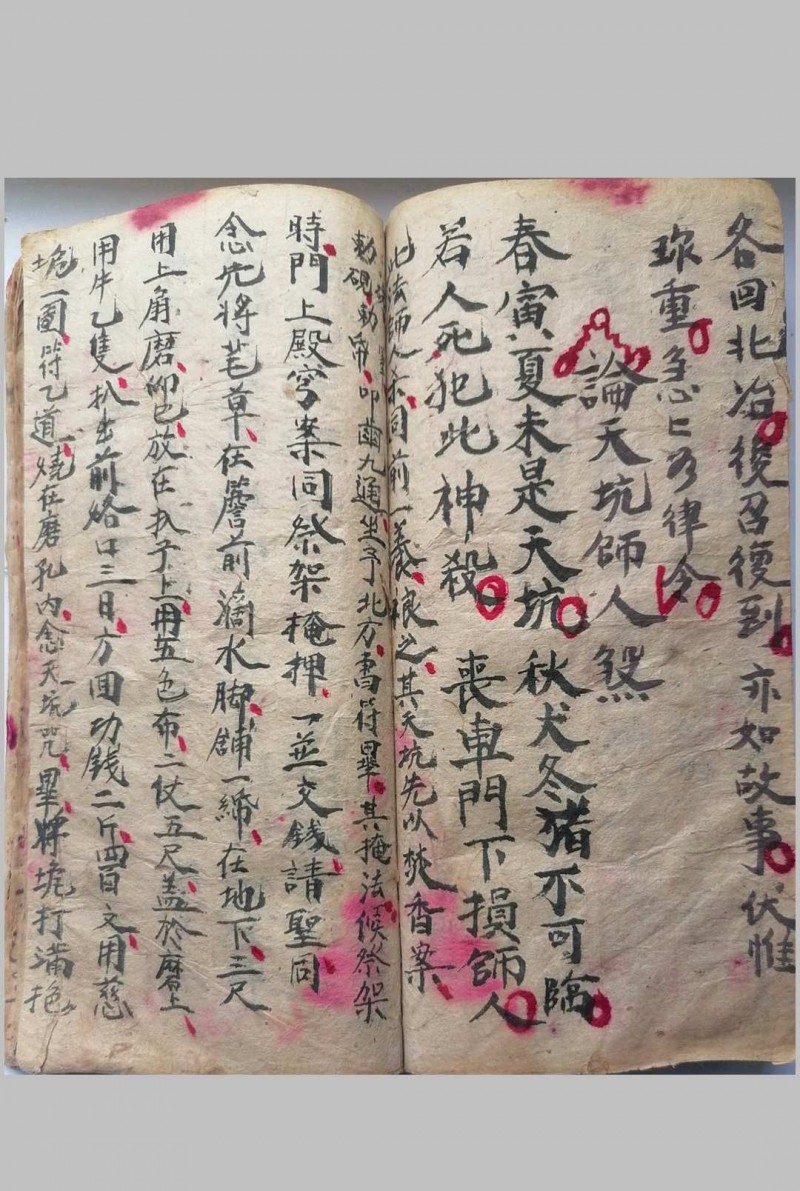 各回北冶後召復到亦如故事伏惟
珎重急〻如律令
論天坑師人煞
春寅夏未是天坑秋犬冬猪不可臨
若人死犯此神殺喪車門下損師人
此法師人亦同前一義根之其天坑先以焚香案
勅硯勅筆叩齒九通坐于北方書符畢其掩法候祭架
時門上殿穹案同祭架掩押一並交錢請聖同
念先將茅草在簷前滴水脚舖一締在地下三尺
用上角磨卯巳放在扒子上用五色布二仗五尺盖於磨上
用牛乙隻扒出前路口三日方回功錢二斤四百文用慈
坭一團符乙道燒在磨孔内念天坑咒畢將坭打滿抱